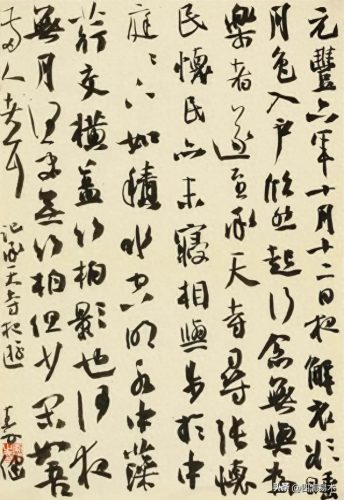 元豐六年十月十二日夜解衣欲睡
月色入户欣然起行念無與
樂者遂至承天寺尋張懷
民懷民亦未寢相與步於中
庭〻下如積水空明水中藻
荇交橫蓋竹柏影也何夜
無月何處無竹柏但少閑
吾兩人者耳
記承天寺夜遊
头条